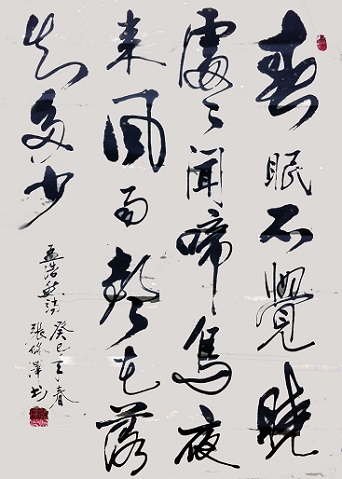 春眠不覺曉
處々聞啼鳥夜
來風雨聲花落
知多少
孟浩然詩
癸巳春
張澤书